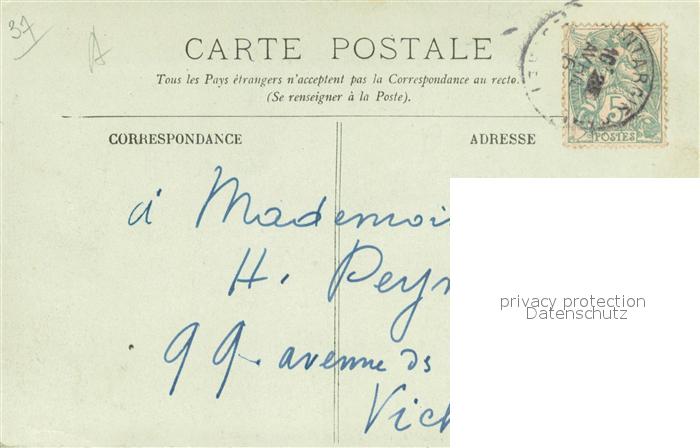 37
A
CARTE POSTALE
Tous les Pays étrangers n'acceptent pas la Correspondance au recto.
(Se renseigner à la Poste).
CORRESPONDANCE
ADRESSE
5
POSTES
à Mademoi
H. Peyr
99. avenue ds
Vich
privacy protection
Datenschutz